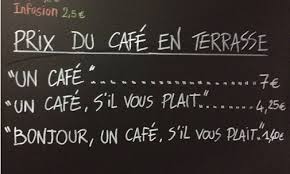 Infusion 2,5€
PRIX DU CAFÉ EN TERRASSE
"UN CAFÉ"........................7€
"UN CAFÉ, S'IL VOUS PLAIT"........4,25€
"BONJOUR, UN CAFÉ, S'IL VOUS PLAIT".1,40€